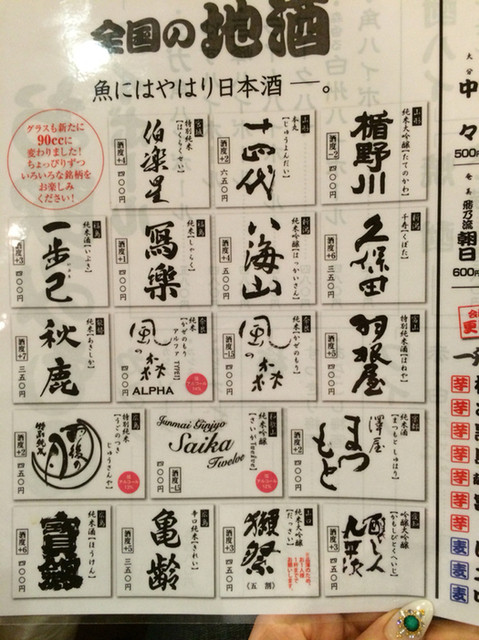 全国の地酒
魚にはやはり日本酒―。
グラスも新たに
90ccに
変わりました!
ちょっぴりずつ
いろいろな銘柄を
お楽しみ
ください!
山形
純米大吟醸【たてのかわ】
楯野川
酒度 -2
四〇〇円
山形
本丸【じゅうよんだい】
十四代
酒度 +2
六五〇円
宮城
特別純米【はくらくせい】
伯楽星
酒度 +4
四〇〇円
新潟
千寿【くぼた】
久保田
酒度 +6
三五〇円
新潟
純米吟醸【はっかいさん】
八海山
酒度 +4
五〇〇円
福島
純米【しゃらく】
寫樂
酒度 +1
四〇〇円
福島
純米酒【いぶき】
一歩己
酒度 +3
四〇〇円
特別純米酒【はねや】
羽根屋
酒度 +5
四〇〇円
純米【かぜのもり】
風の森
酒度 -1.5
四〇〇円
純米【かぜのもり アルファ TYPE1】
風の森
ALPHA
四〇〇円
純米【あきしか】
秋鹿
酒度 +7
三五〇円
純米酒【まつもと しゅはり】
澤屋
まつもと
酒度 +2
四〇〇円
和歌山
純米吟醸【さいかTwelve】
Junmai Ginjyo
Saika
Twelve
四〇〇円
広島
特別純米【うごのつき じゅうさんや】
雨後の月
酒度 +2
四五〇円
吟醸大吟醸【かもしびとくへいじ】
醸し人
九平次
酒度 +3
四五〇円
山口
純米大吟醸【だっさい】
獺祭
(五割)
酒度 +3
四五〇円
広島
辛口純米【きれい】
亀齢
酒度 +5
三五〇円
広島
純米酒【ほうけん】
寳劔
酒度 +6
四〇〇円
中々
500
朝日
600円
芋
芋
芋
芋
芋
芋
麦
麦